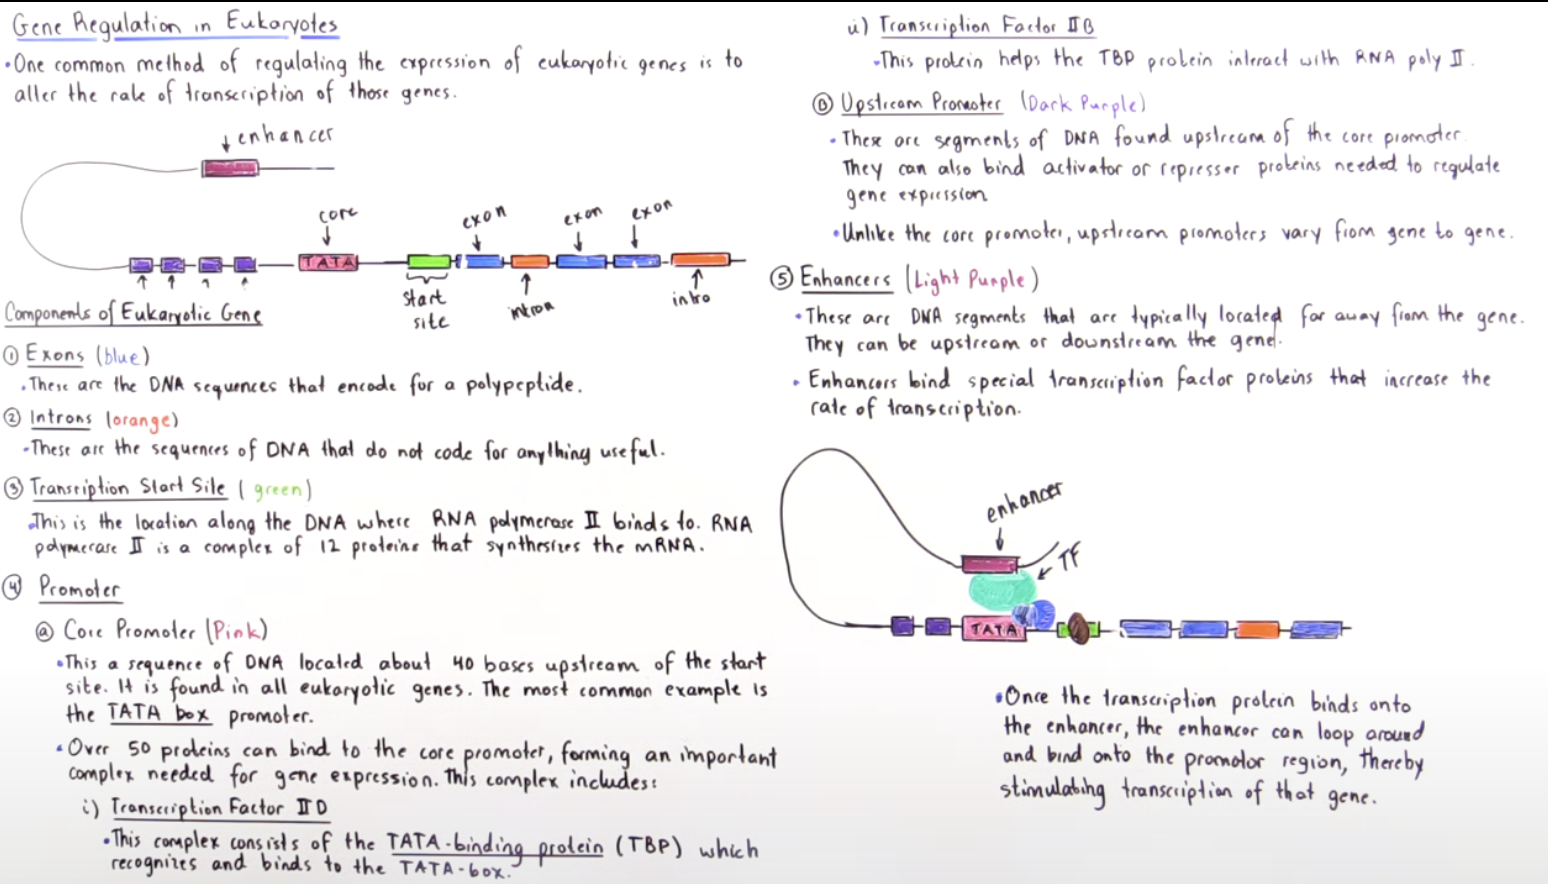 Gene Regulation in Eukaryotes
• One common method of regulating the expression of eukaryotic genes is to
alter the rate of transcription of those genes.
enhancer
core
exon
exon
exon
TATA
start
site
intron
intro
Components of Eukaryotic Gene
① Exons (blue)
• These are the DNA sequences that encode for a polypeptide.
② Introns (orange)
• These are the sequences of DNA that do not code for anything useful.
③ Transcription Start Site (green)
• This is the location along the DNA where RNA polymerase II binds to. RNA
polymerase II is a complex of 12 proteins that synthesizes the mRNA.
④ Promoter
ⓐ Core Promoter (Pink)
• This a sequence of DNA located about 40 bases upstream of the start
site. It is found in all eukaryotic genes. The most common example is
the TATA box promoter.
• Over 50 proteins can bind to the core promoter, forming an important
complex needed for gene expression. This complex includes:
i) Transcription Factor II D
• This complex consists of the TATA-binding protein (TBP) which
recognizes and binds to the TATA-box.
ii) Transcription Factor II B
• This protein helps the TBP protein interact with RNA poly II.
Ⓑ Upstream Promoter (Dark Purple)
• These are segments of DNA found upstream of the core promoter.
They can also bind activator or represser proteins needed to regulate
gene expression
• Unlike the core promoter, upstream promoters vary from gene to gene.
⑤ Enhancers (Light Purple)
• These are DNA segments that are typically located far away from the gene.
They can be upstream or downstream the gene.
• Enhancers bind special transcription factor proteins that increase the
rate of transcription.
enhancer
TF
TATA
• Once the transcription protein binds onto
the enhancer, the enhancer can loop around
and bind onto the promotor region, thereby
stimulating transcription of that gene.